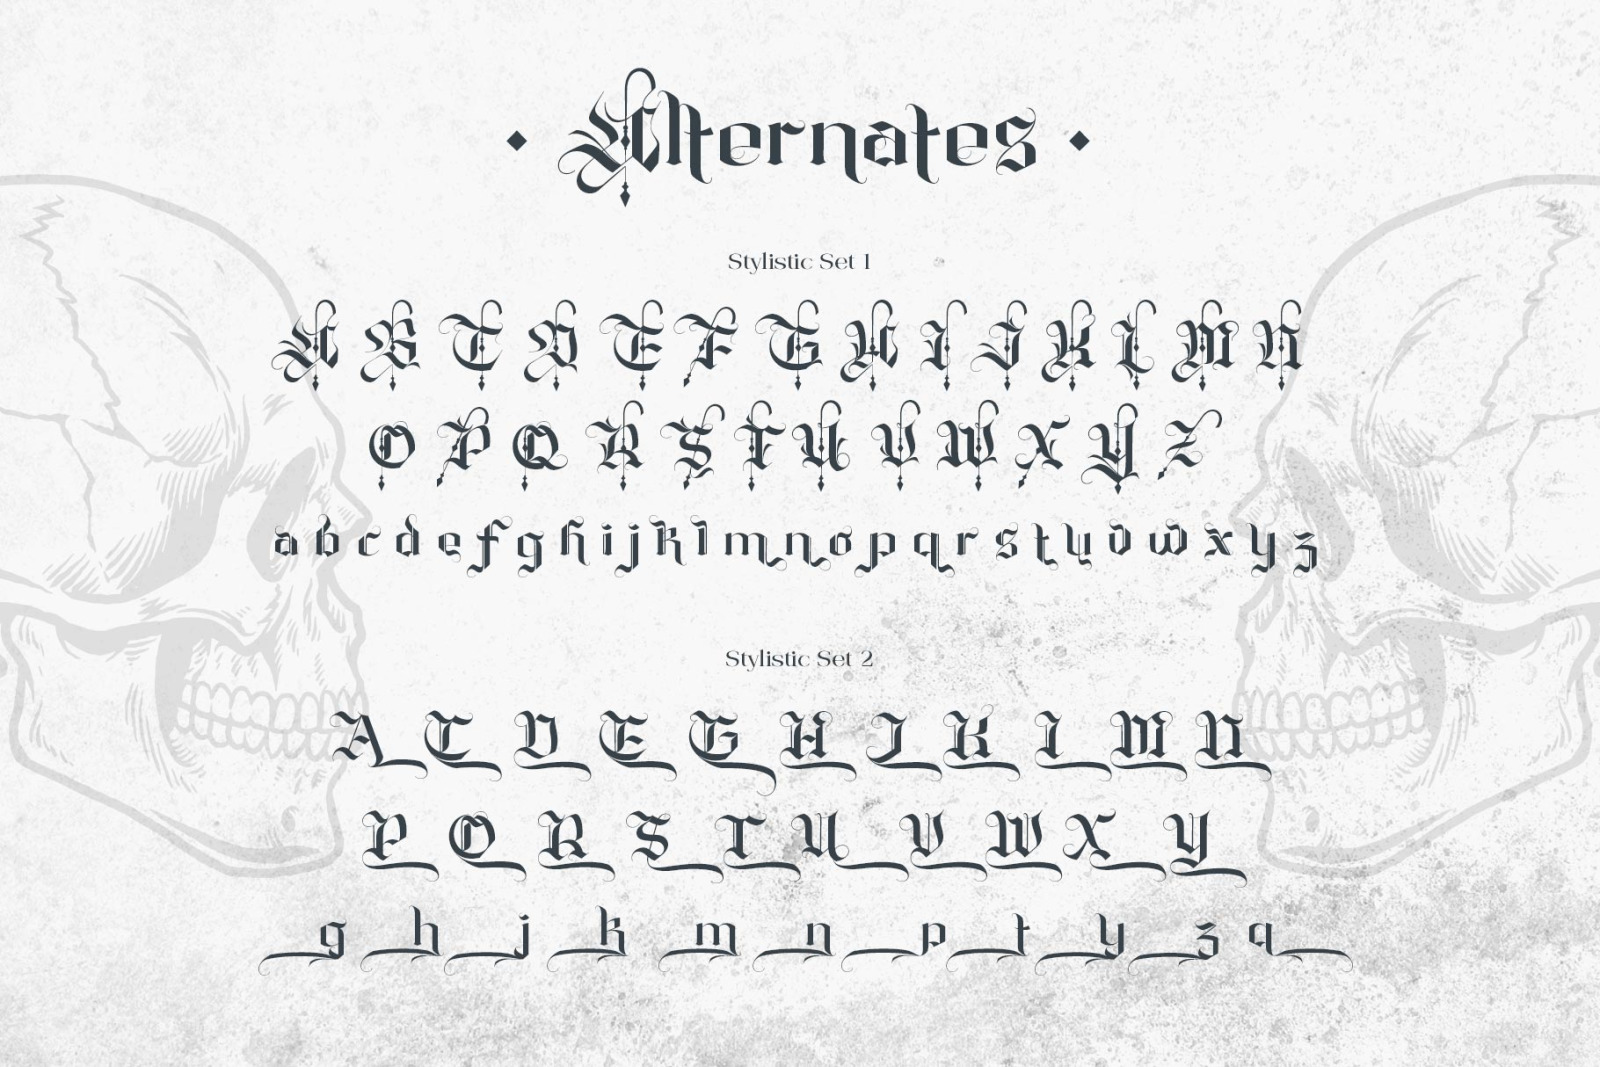 Alternates
Stylistic Set 1
A B C D E F G H I J K L M N
O P Q R S T U V W X Y Z
a b c d e f g h i j k l m n o p q r s t u v w x y z
Stylistic Set 2
A C D E G H J K L M N
P O R S T U V W X Y
g h j k m n p t y z q